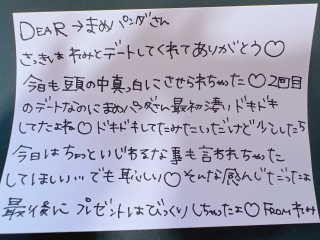 DEAR→まめパンダさん
さっきは れみとデートしてくれてありがとう♡
今日も頭の中真っ白にさせられちゃった♡2回目
のデートなのにまめパンダさん最初凄いドキドキ
してたよね♡ドキドキしてたみたいだけど少ししたら
今日はちょっといじわるな事も言われちゃった
してほしい…でも恥しい♡そんな感んじだったよ
最後に プレゼントはびっくりしちゃったよ♡FROMれみ